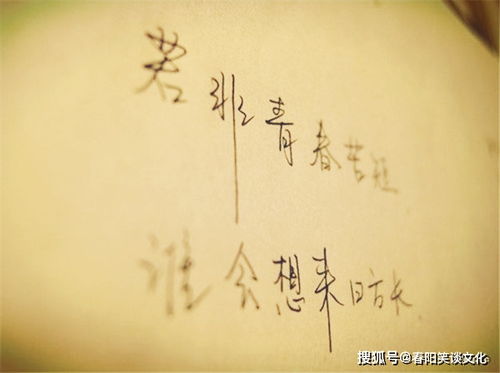 若非青春苦短
谁会想来日方长
搜狐号@春阳笑谈文化